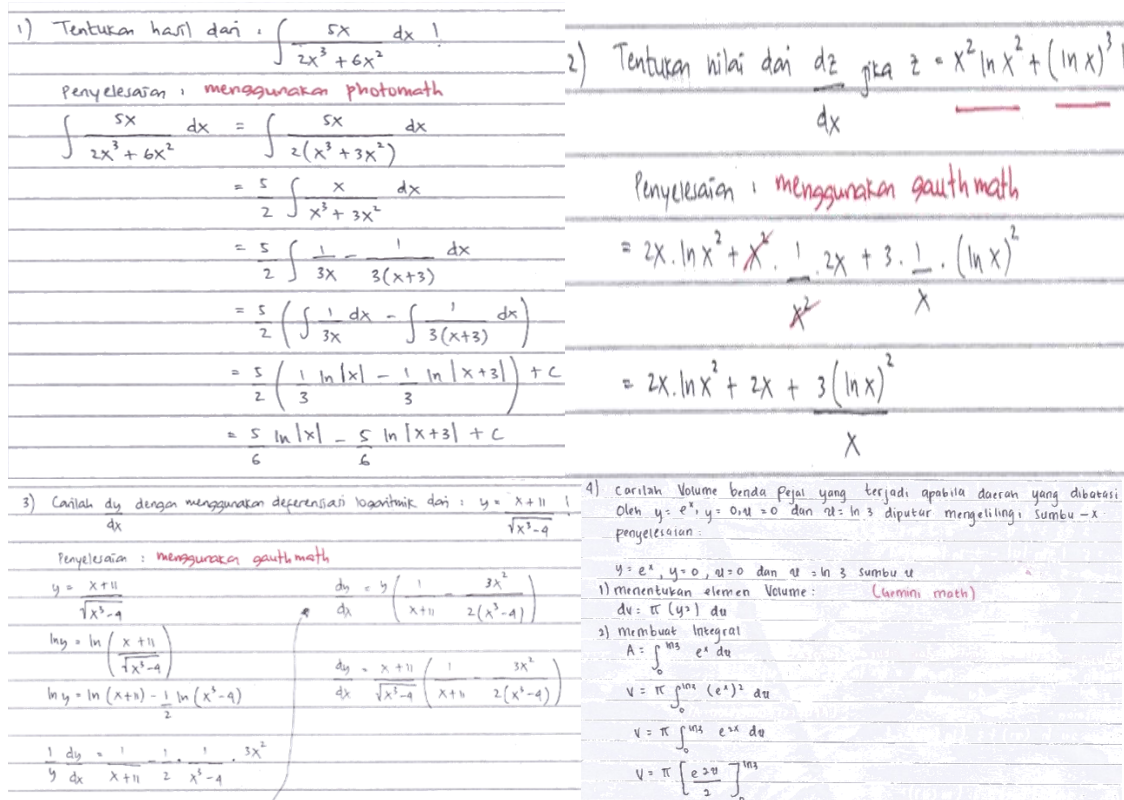 1) Tentukan hasil dari : ∫ 5x / 2x³ + 6x² dx !
Penyelesaian : menggunakan photomath
∫ 5x / 2x³ + 6x² dx = ∫ 5x / 2(x³ + 3x²) dx
= 5/2 ∫ x / x³ + 3x² dx
= 5/2 ∫ 1/3x - 1/3(x+3) dx
= 5/2 ( ∫ 1/3x dx - ∫ 1/3(x+3) dx )
= 5/2 ( 1/3 ln|x| - 1/3 ln|x+3| ) + c
= 5/6 ln|x| - 5/6 ln|x+3| + c
2) Tentukan nilai dari dz/dx jika z = x² ln x² + (ln x)³
Penyelesaian : menggunakan gauthmath
= 2x . ln x² + x² . 1/x² . 2x + 3 . 1/x . (ln x)²
= 2x . ln x² + 2x + 3(ln x)² / x
3) Carilah dy/dx dengan menggunakan deferensiasi logaritmik dari : y = x+11 / √x³-4 !
Penyelesaian : menggunakan gauthmath
y = x+11 / √x³-4
ln y = ln ( x+11 / √x³-4 )
ln y = ln (x+11) - 1/2 ln (x³-4)
1/y dy/dx = 1/x+11 - 1/2 . 1/x³-4 . 3x²
dy/dx = y ( 1/x+11 - 3x²/2(x³-4) )
dy/dx = x+11/√x³-4 ( 1/x+11 - 3x²/2(x³-4) )
4) Carilah Volume benda pejal yang terjadi apabila daerah yang dibatasi
oleh y = eˣ, y = 0, x = 0 dan x = ln 3 diputar mengelilingi sumbu -x
penyelesaian :
y = eˣ, y = 0, x = 0 dan x = ln 3 sumbu x
1) menentukan elemen Volume : (Gemini math)
dv = π (y²) dx
2) membuat Integral
A = ∫₀ ln3 eˣ dx
V = π ∫₀ ln3 (eˣ)² dx
V = π ∫₀ ln3 e²ˣ dx
V = π [ e²ˣ / 2 ]₀ ln3